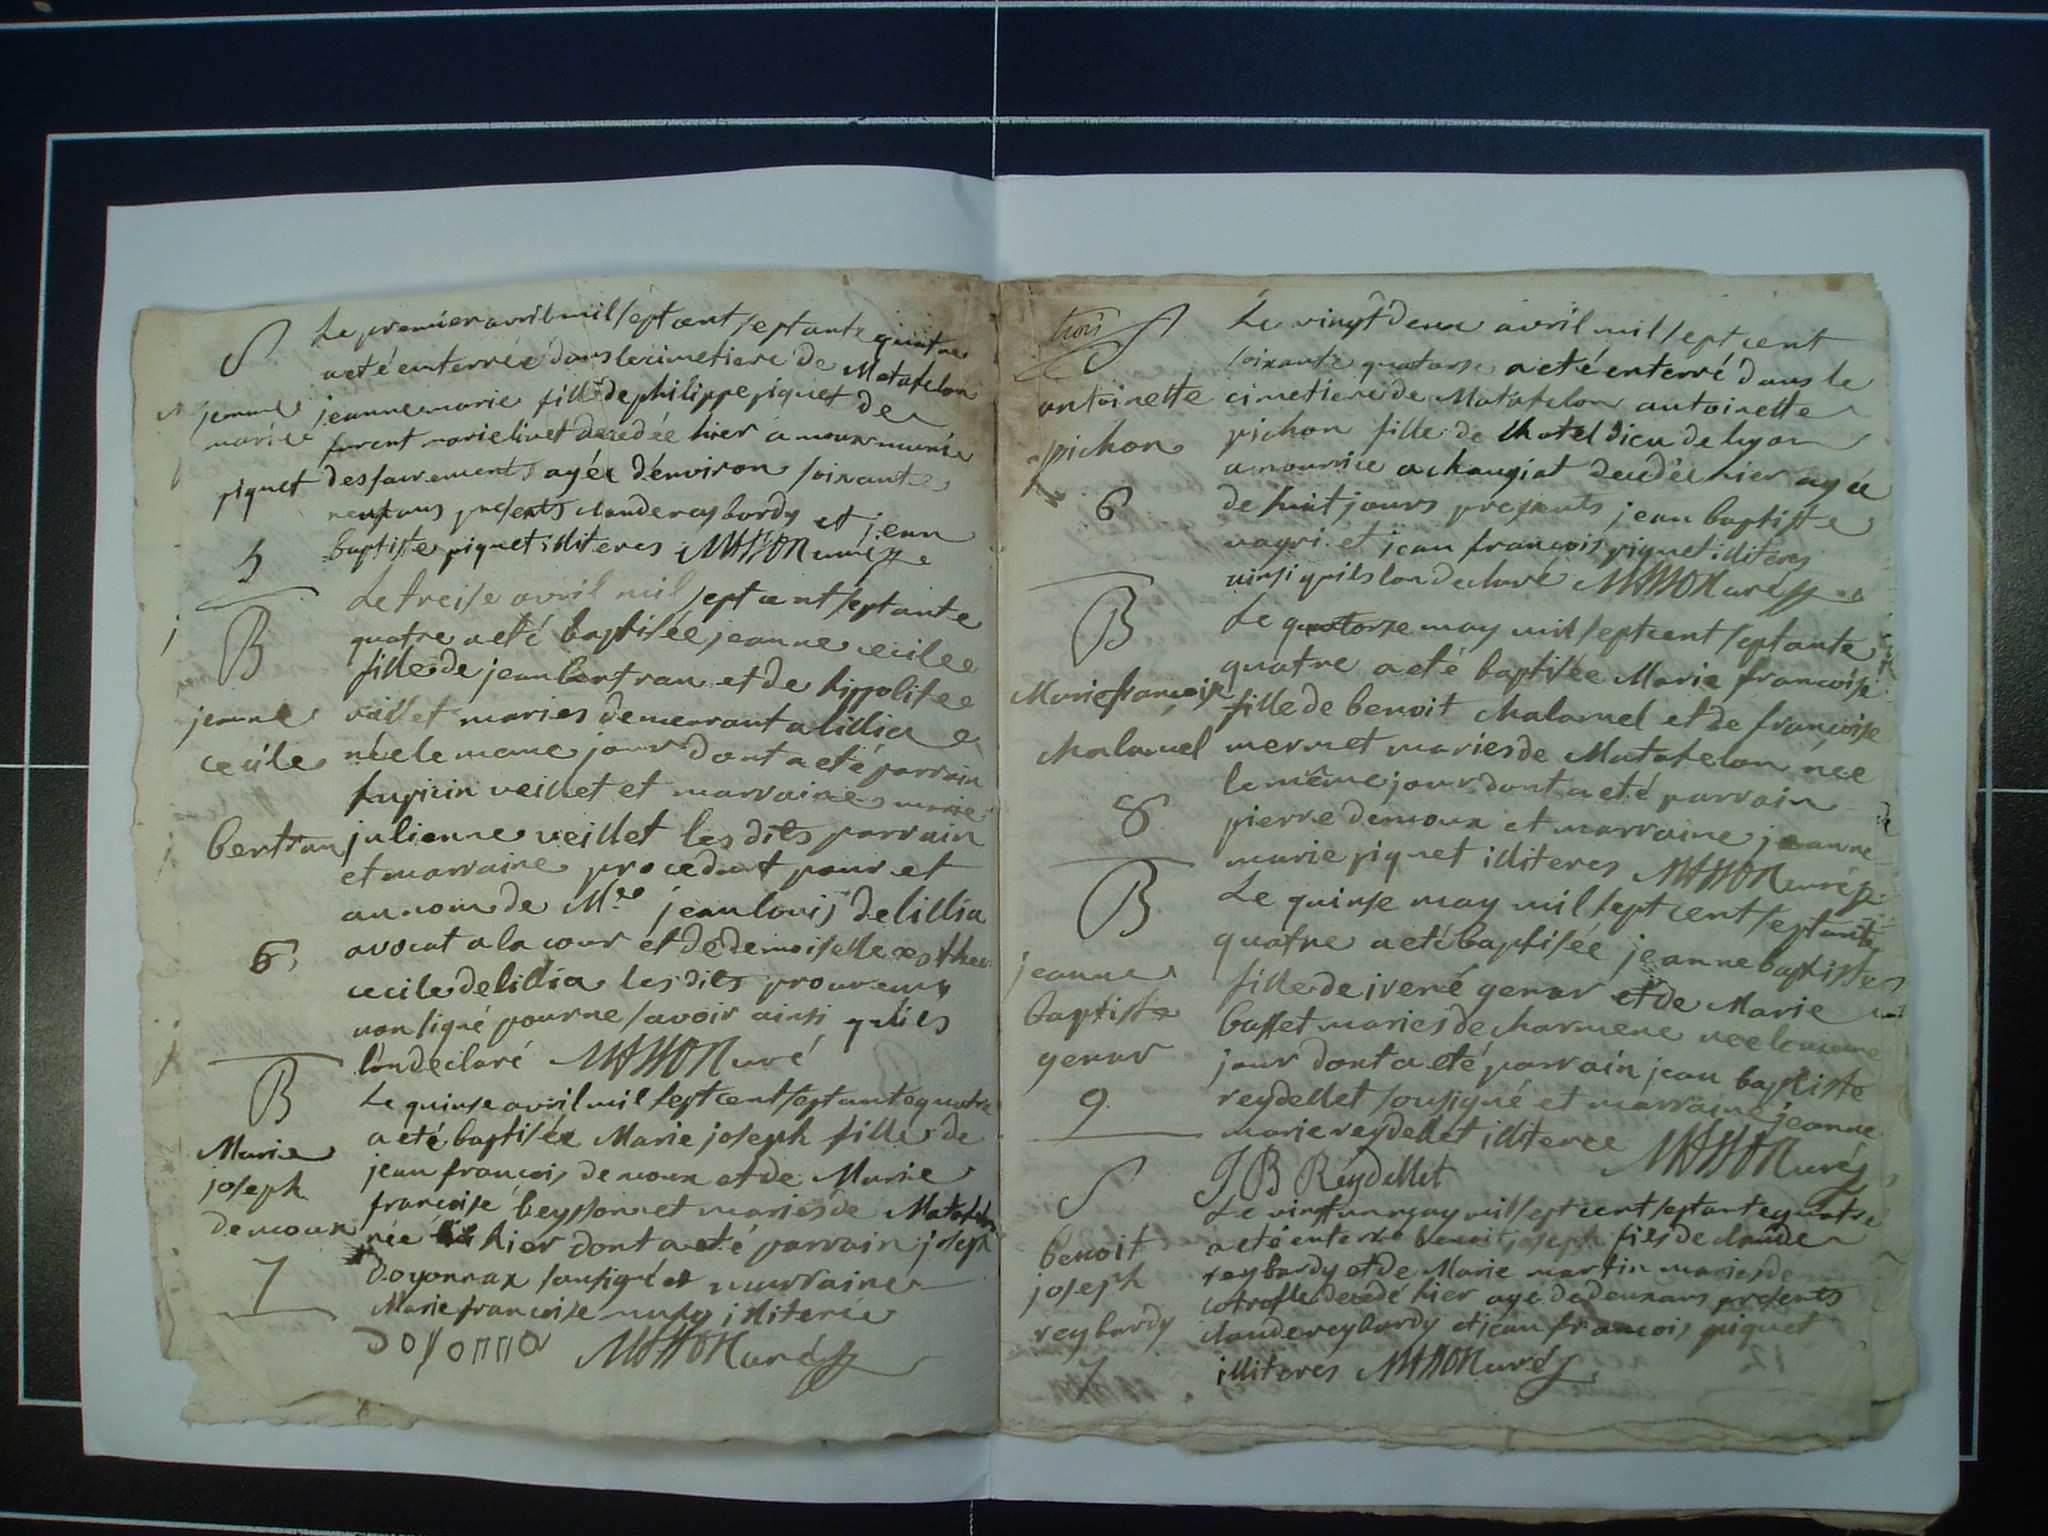 S
Le premier avril mil sept cent septante quatre
a eté enterrée dans le cimetiere de Matafelon
jeanne marie fille de philippe piquet de
marie
hier a munie
piquet
des sacrements agée d'environ soixante
ans presents claude reybardy et jean
5
baptiste piquet illiteres MASSON curé
B
Le treise avril mil sept cent septante
quatre a eté baptisée jeanne cecile
fille de jean bertran et de hippolite
jeanne
veillet maries demeurant a lillia
cecile
née le meme jour dont a eté parrain
veillet et marraine
bertran
julienne veillet les dits parrain
et marraine procedant pour et
au nom de Mre jean louis delillia
6
avocat a la cour et de demoiselle esther
cecile delillia les dits procureurs
non signé pour ne savoir ainsi qu'ils
l'on declaré MASSON curé
B
Le quinse avril mil sept cent septante quatre
a eté baptisée Marie joseph fille de
Marie
joseph
demoux
jean francois demoux et de Marie
francoise beyssonnet maries de Matafelon
née hier dont a eté parrain joseph
7
doyonnax sousigné et marraine
Marie francoise illiteree
DOYONNA MASSON curé
trois
S
Le vingt deux avril mil sept cent
soixante quatorse a eté enterré dans le
antoinette
cimetiere de Matafelon antoinette
pichon
pichon fille de lhotel dieu de lyon
a nourrice a changiat decedée hier agée
6
de huit jours presents jean baptiste
et jean françois piquet illiteres
ainsi quils lon declaré MASSON curé
B
Le quatorse may mil sept cent septante
quatre a eté baptisée Marie francoise
Marie francoise
fille de benoit Malamel et de françoise
Malamel
mermet maries de Matafelon née
le même jour dont a eté parrain
8
pierre demoux et marraine jeanne
marie piquet illiteres MASSON curé
B
Le quinse may mil sept cent septante
quatre a eté baptisée jeanne baptiste
jeanne
fille de irené genar et de Marie
baptiste
basset maries de charmene née le meme
genar
jour dont a eté parrain jean baptiste
9
reydellet sousigné et marraine jeanne
marie reydellet illiteree MASSON curé
J B Reydellet
S
Le vingt un may mil sept cent septante quatre
a eté enterré benoit joseph fils de claude
benoit
reybardy et de Marie martin maries de
joseph
decedé hier agé de deux ans presents
reybardy
claude reybardy et jean francois piquet
7
illiteres MASSON curé